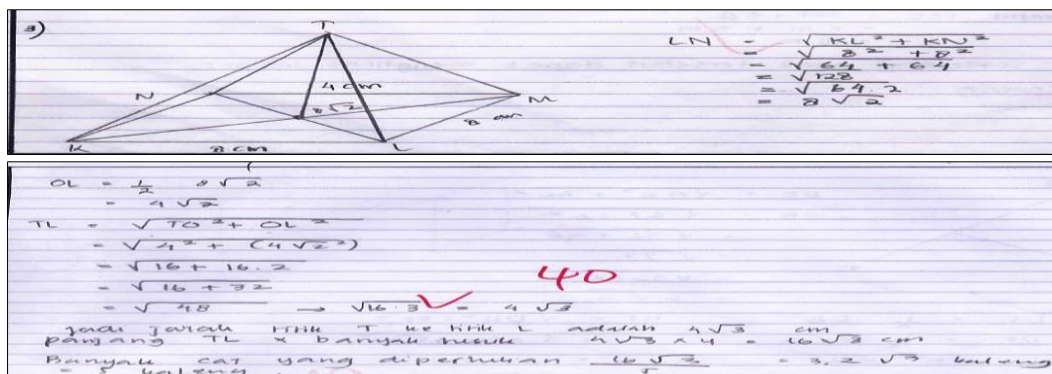 3)
T
N
4 cm
M
8√2
8 cm
K
8 cm
L
LN = √KL² + KN²
= √8² + 8²
= √64 + 64
= √128
= √64.2
= 8√2
OL = 1/2 8√2
= 4√2
TL = √TO² + OL²
= √4² + (4√2²)
= √16 + 16.2
= √16 + 32
= √48 → √16.3 = 4√3
40
Jadi jarak titik T ke titik L adalah 4√3 cm
panjang TL x banyak rusuk 4√3 x 4 = 16√3 cm
Banyak cat yang diperlukan 16√3/5 = 3,2 √3 kaleng
= 5 kaleng